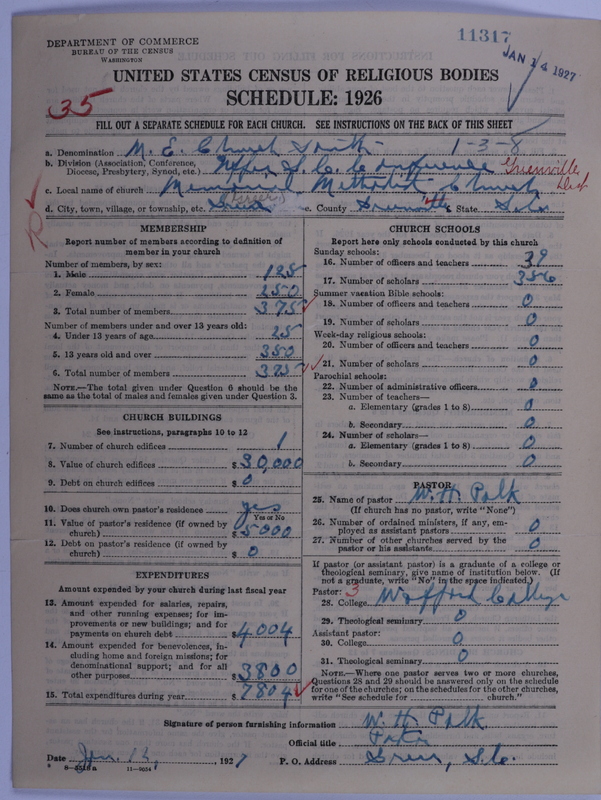 DEPARTMENT OF COMMERCE
BUREAU OF THE CENSUS
WASHINGTON
11317
JAN 14 1927
UNITED STATES CENSUS OF RELIGIOUS BODIES
SCHEDULE: 1926
35
FILL OUT A SEPARATE SCHEDULE FOR EACH CHURCH. SEE INSTRUCTIONS ON THE BACK OF THIS SHEET
a. Denomination M. E. Church South 1-3-8
b. Division (Association, Conference, Diocese, Presbytery, Synod, etc.) Upper S. C. Conference Greenville Dist
c. Local name of church Memorial Methodist Church
d. City, town, village, or township, etc. Greer (Greer) e. County Greenville State So. Ca.
R
MEMBERSHIP
Report number of members according to definition of member in your church
Number of members, by sex:
1. Male 125
2. Female 250
3. Total number of members 375
Number of members under and over 13 years old:
4. Under 13 years of age 25
5. 13 years old and over 350
6. Total number of members 375
NOTE.—The total given under Question 6 should be the same as the total of males and females given under Question 3.
CHURCH BUILDINGS
See instructions, paragraphs 10 to 12
7. Number of church edifices 1
8. Value of church edifices $30,000
9. Debt on church edifices $0
10. Does church own pastor's residence yes
Yes or No
11. Value of pastor's residence (if owned by church) $5000
12. Debt on pastor's residence (if owned by church) $0
EXPENDITURES
Amount expended by your church during last fiscal year
13. Amount expended for salaries, repairs, and other running expenses; for improvements or new buildings; and for payments on church debt $4004
14. Amount expended for benevolences, including home and foreign missions; for denominational support; and for all other purposes $3800
15. Total expenditures during year $7804
CHURCH SCHOOLS
Report here only schools conducted by this church
Sunday schools:
16. Number of officers and teachers 39
17. Number of scholars 356
Summer vacation Bible schools:
18. Number of officers and teachers 0
19. Number of scholars 0
Week-day religious schools:
20. Number of officers and teachers 0
21. Number of scholars 0
Parochial schools:
22. Number of administrative officers 0
23. Number of teachers—
a. Elementary (grades 1 to 8) 0
b. Secondary 0
24. Number of scholars—
a. Elementary (grades 1 to 8) 0
b. Secondary 0
PASTOR
25. Name of pastor W. H. Polk
(If church has no pastor, write "None")
26. Number of ordained ministers, if any, employed as assistant pastors 0
27. Number of other churches served by the pastor or his assistants 0
If pastor (or assistant pastor) is a graduate of a college or theological seminary, give name of institution below. (If not a graduate, write "No" in the space indicated.)
Pastor: 3
28. College Wofford College
29. Theological seminary 0
Assistant pastor:
30. College 0
31. Theological seminary 0
NOTE.—Where one pastor serves two or more churches, Questions 28 and 29 should be answered only on the schedule for one of the churches; on the schedules for the other churches, write "See schedule for church."
Signature of person furnishing information W. H. Polk
Official title Pastor
Date Jan. 13, 1927 P. O. Address Greer, S.C.
11—9034